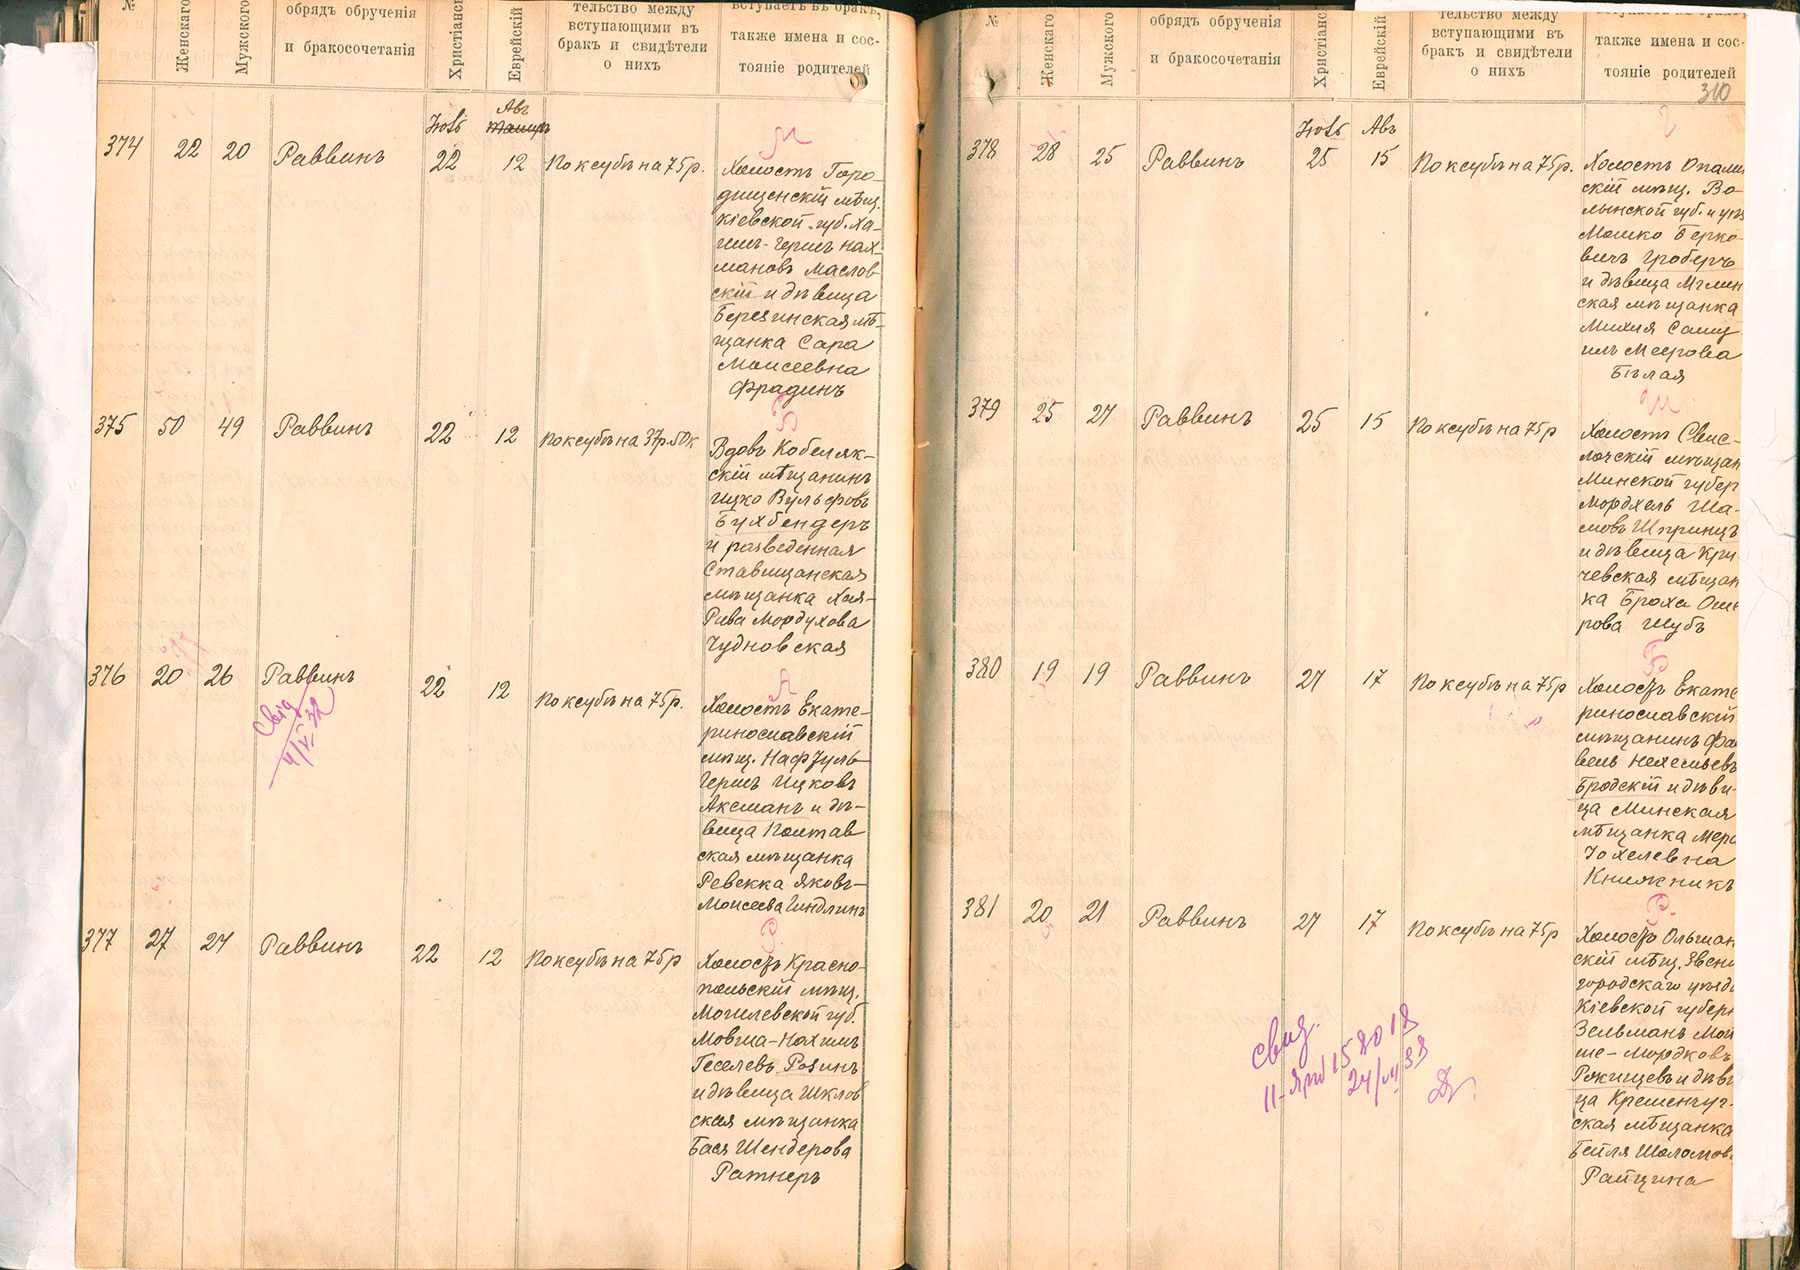 №
Женскаго
Мужского
обрядъ обрученія
и бракосочетанія
Христіанс
Еврейскій
тельство между
вступающими въ
бракъ и свидѣтели
о нихъ
вступаетъ въ бракъ,
также имена и сос-
тояніе родителей
Авъ
374 22 20 Раввинъ 22 12 По ксубѣ на 75 р.
М
Холостъ Горо-
дищенскій мѣщ.
Кіевской губ. Ха-
имъ-Гершъ Нах-
мановъ Маслов
скій и дѣвица
Березинская мѣ-
щанка Сара
Моисеевна
Фрадинъ
375 50 49 Раввинъ 22 12 По ксубѣ на 37р. 50к
Б
Вдовъ Кобеляк-
скій мѣщанинъ
Ицко Вульфовъ
Бухбендеръ
и разведенная
Ставищанская
мѣщанка Хая-
Рива Мордухова
Чудновская
376 20 26 Раввинъ 22 12 По ксубѣ на 75р.
Свид
4/VI 32
А
Холостъ Екате-
ринославскій
мѣщ. Нафтуль-
Гершъ Ицковъ
Аксманъ и дѣ-
вица Полтав
ская мѣщанка
Ревекка Яковъ-
Моисеева Гиндлинъ
377 27 27 Раввинъ 22 12 По ксубѣ на 75р
Р
Холостъ Красно-
польскій мѣщ.
Могилевской губ.
Мовша-Нахимъ
Геселевъ Розинъ
и дѣвица Шклов
ская мѣщанка
Бася Шендерова
Ратнеръ
№
Женскаго
Мужского
обрядъ обрученія
и бракосочетанія
Христіанс
Еврейскій
тельство между
вступающими въ
бракъ и свидѣтели
о нихъ
также имена и сос-
тояніе родителей
310
Авъ
378 28 25 Раввинъ 25 15 По ксубѣ на 75р.
Г
Холостъ Опалин
скій мѣщ. Во-
лынской губ. и уѣз
Мошко Берко-
вичъ Гроберъ
и дѣвица Мглин
ская мѣщанка
Михля Саму
илъ Меерова
Бѣлая
379 25 27 Раввинъ 25 15 По ксубѣ на 75р
Ш
Холостъ Свис-
лочскій мѣщан
Минской губер
Мордхель Ша-
мовъ Шпринцъ
и дѣвица Кри
чевская мѣщан
ка Броха Оше
рова Шубъ
380 19 19 Раввинъ 27 17 По ксубѣ на 75р
Б
Холостъ Екате
ринославскій
мѣщанинъ
Бродскій и дѣви-
ца Минская
мѣщанка Мера
Іохелевна
Книжникъ
381 20 21 Раввинъ 27 17 По ксубѣ на 75р
Р.
Холостъ Ольшан
скій мѣщ. Звени
городскаго уѣзда
Кіевской губерн
Зельманъ Мой
ше-Мордковъ
Рожищевъ и дѣви
ца Кременчуг-
ская мѣщанка
Бейля Шоломов
Райцина
свид.